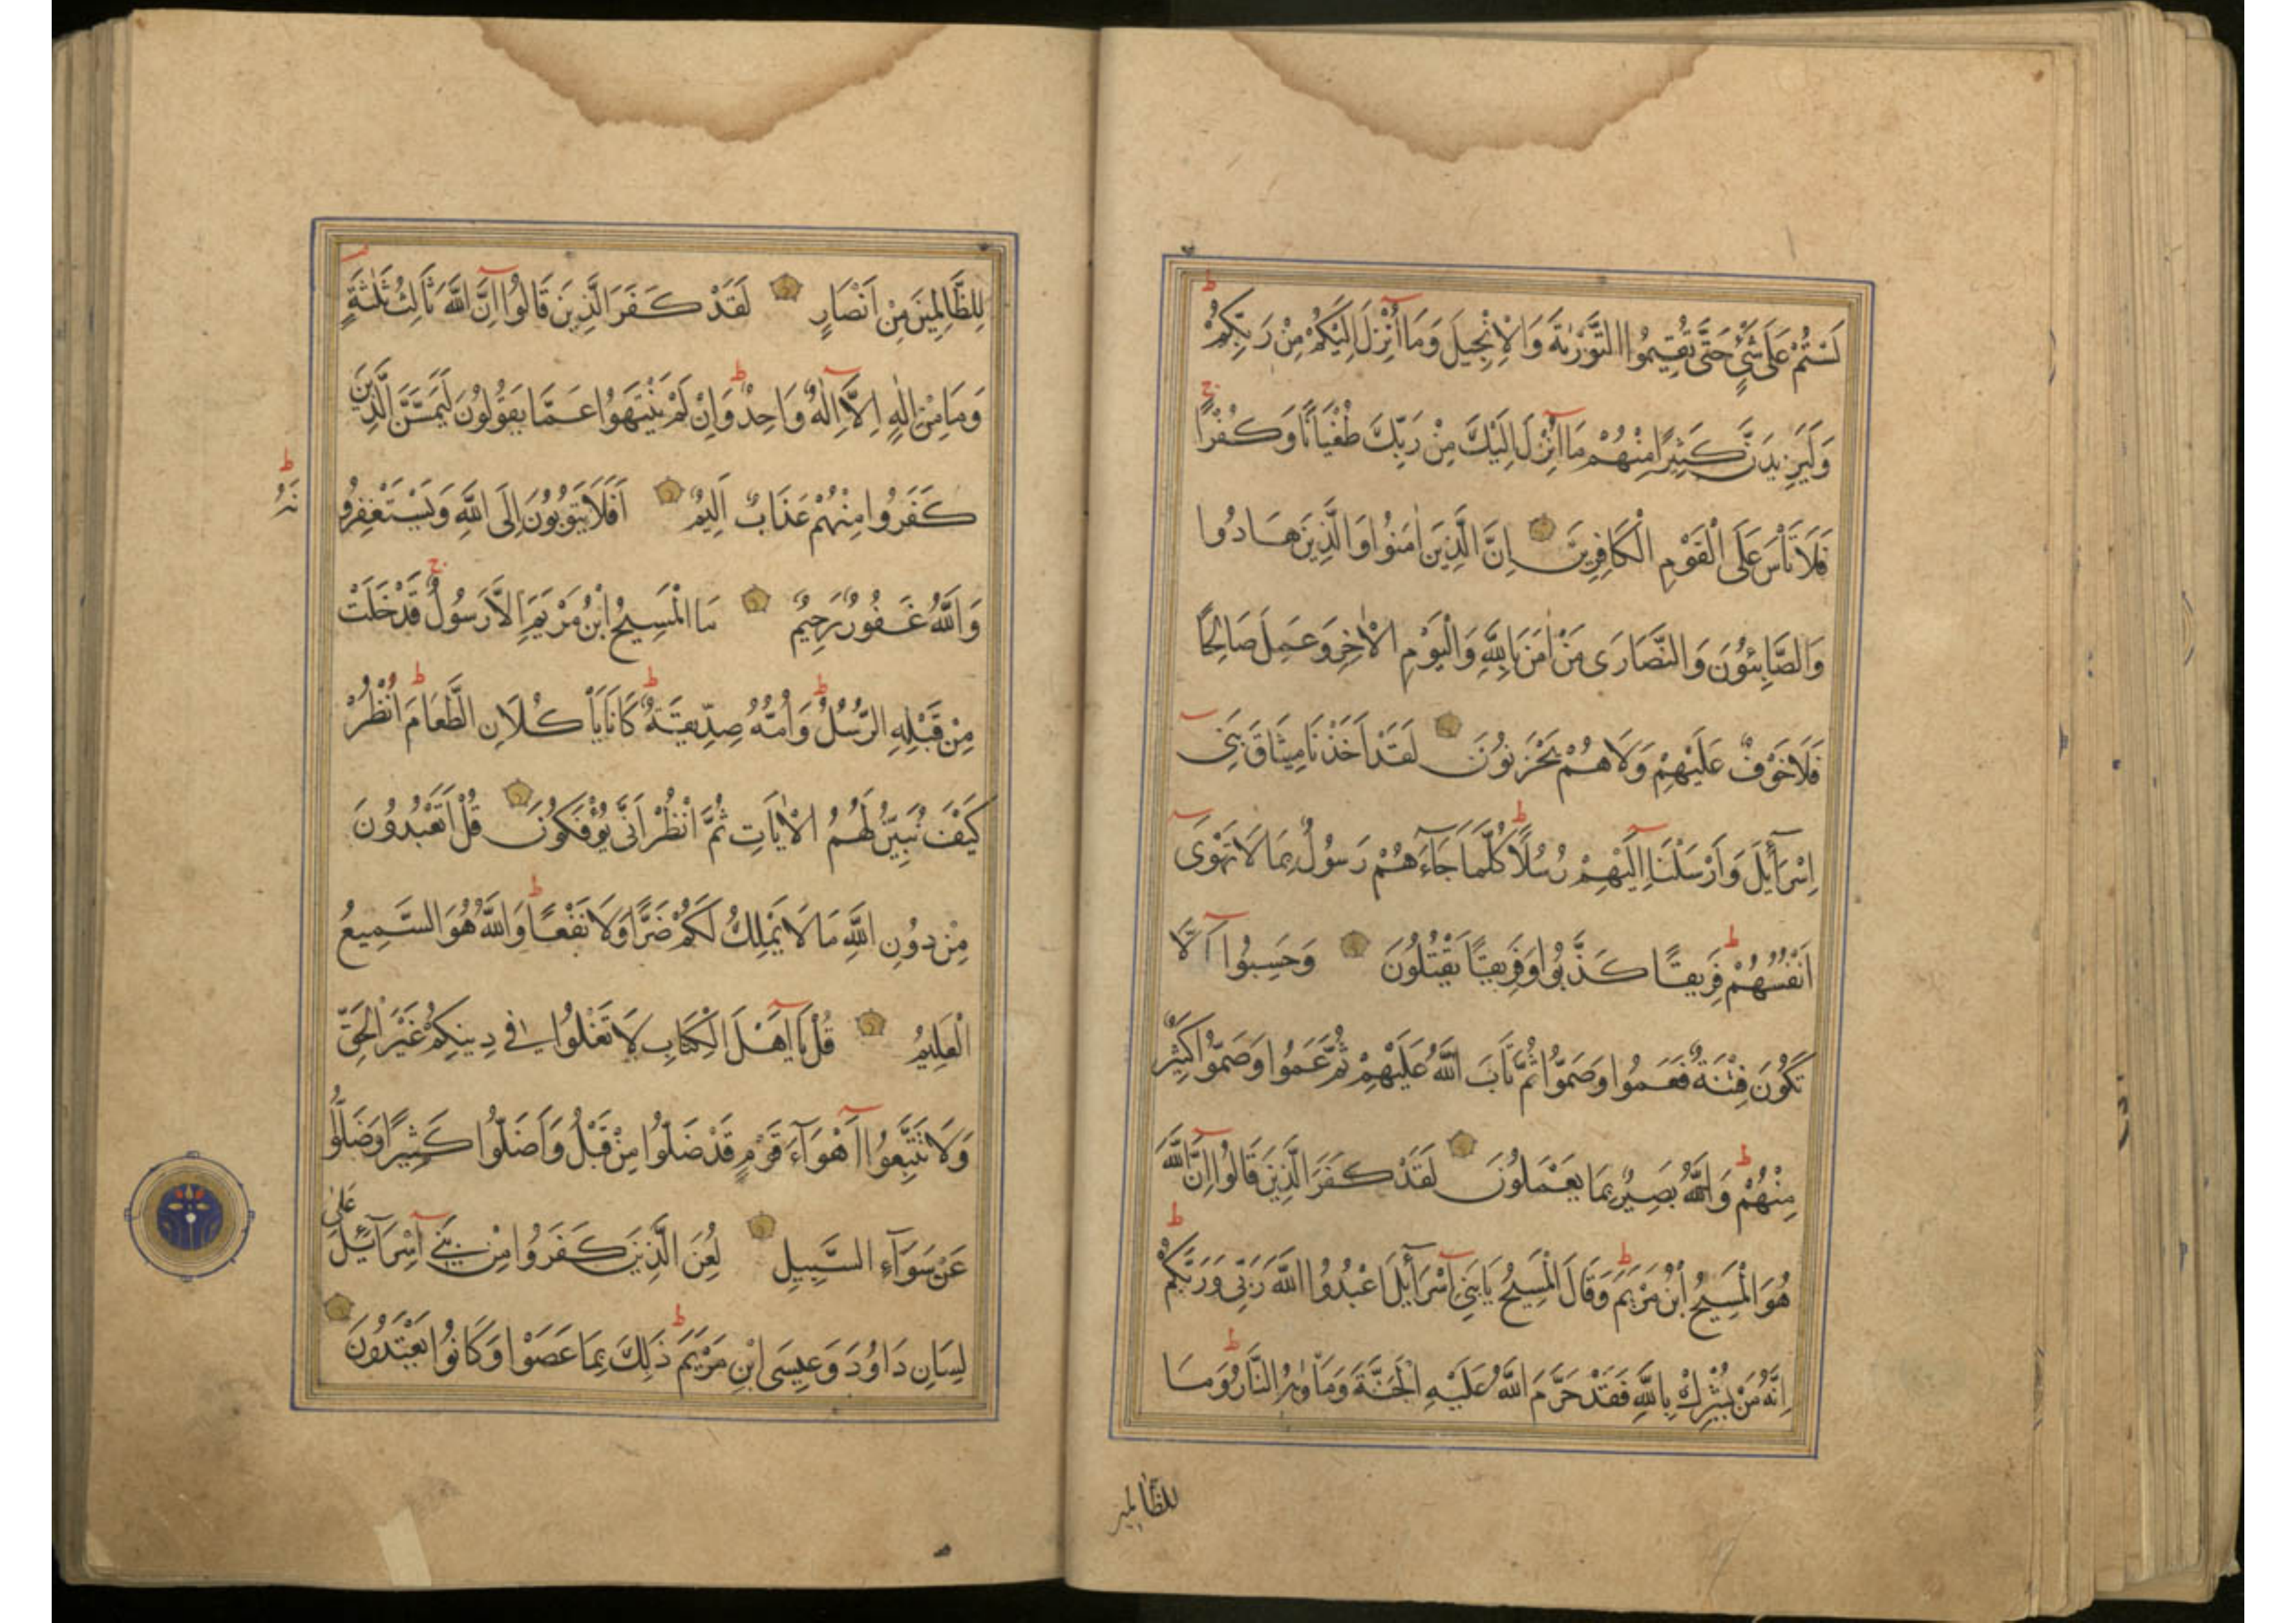 لَسْتُمْ عَلَى شَيْءٍ حَتَّى تُقِيمُوا التَّوْرٰيةَ وَالْاِنْجِيلَ وَمَا اُنْزِلَ اِلَيْكُمْ مِنْ رَبِّكُمْ ط
وَلَيَزِيدَنَّ كَثِيرًا مِنْهُمْ مَا اُنْزِلَ اِلَيْكَ مِنْ رَبِّكَ طُغْيَانًا وَكُفْرًا ج
فَلَا تَأْسَ عَلَى الْقَوْمِ الْكَافِرِينَ اِنَّ الَّذِينَ اٰمَنُوا وَالَّذِينَ هَادُوا
وَالصَّابِئُونَ وَالنَّصَارَى مَنْ اٰمَنَ بِاللّٰهِ وَالْيَوْمِ الْاٰخِرِ وَعَمِلَ صَالِحًا
فَلَا خَوْفٌ عَلَيْهِمْ وَلَا هُمْ يَحْزَنُونَ لَقَدْ اَخَذْنَا مِيثَاقَ بَنِي
اِسْرَآئِلَ وَاَرْسَلْنَا اِلَيْهِمْ رُسُلًا ط كُلَّمَا جَآءَهُمْ رَسُولٌ بِمَا لَا تَهْوَى
اَنْفُسُهُمْ ط فَرِيقًا كَذَّبُوا وَفَرِيقًا يَقْتُلُونَ وَحَسِبُوا اَلَّا
تَكُونَ فِتْنَةٌ فَعَمُوا وَصَمُّوا ثُمَّ تَابَ اللّٰهُ عَلَيْهِمْ ثُمَّ عَمُوا وَصَمُّوا كَثِيرٌ
مِنْهُمْ ط وَاللّٰهُ بَصِيرٌ بِمَا يَعْمَلُونَ لَقَدْ كَفَرَ الَّذِينَ قَالُوا اِنَّ اللّٰهَ
هُوَ الْمَسِيحُ ابْنُ مَرْيَمَ ط وَقَالَ الْمَسِيحُ يَا بَنِي اِسْرَآئِلَ اعْبُدُوا اللّٰهَ رَبِّي وَرَبَّكُمْ ط
اِنَّهُ مَنْ يُشْرِكْ بِاللّٰهِ فَقَدْ حَرَّمَ اللّٰهُ عَلَيْهِ الْجَنَّةَ وَمَأْوٰيهُ النَّارُ ط وَمَا
للظَّالمين
لِلظَّالِمِينَ مِنْ اَنْصَارٍ لَقَدْ كَفَرَ الَّذِينَ قَالُوا اِنَّ اللّٰهَ ثَالِثُ ثَلٰثَةٍ
وَمَا مِنْ اِلٰهٍ اِلَّا اِلٰهٌ وَاحِدٌ ط وَاِنْ لَمْ يَنْتَهُوا عَمَّا يَقُولُونَ لَيَمَسَّنَّ الَّذِينَ
كَفَرُوا مِنْهُمْ عَذَابٌ اَلِيمٌ اَفَلَا يَتُوبُونَ اِلَى اللّٰهِ وَيَسْتَغْفِرُو
نَهُ ط
وَاللّٰهُ غَفُورٌ رَحِيمٌ مَا الْمَسِيحُ ابْنُ مَرْيَمَ اِلَّا رَسُولٌ ج قَدْ خَلَتْ
مِنْ قَبْلِهِ الرُّسُلُ ط وَاُمُّهُ صِدِّيقَةٌ ط كَانَا يَأْكُلَانِ الطَّعَامَ ط اُنْظُرْ
كَيْفَ نُبَيِّنُ لَهُمُ الْاٰيَاتِ ثُمَّ انْظُرْ اَنَّى يُؤْفَكُونَ قُلْ اَتَعْبُدُونَ
مِنْ دُونِ اللّٰهِ مَا لَا يَمْلِكُ لَكُمْ ضَرًّا وَلَا نَفْعًا ط وَاللّٰهُ هُوَ السَّمِيعُ
الْعَلِيمُ قُلْ يَا اَهْلَ الْكِتَابِ لَا تَغْلُوا فِي دِينِكُمْ غَيْرَ الْحَقِّ
وَلَا تَتَّبِعُوا اَهْوَآءَ قَوْمٍ قَدْ ضَلُّوا مِنْ قَبْلُ وَاَضَلُّوا كَثِيرًا وَضَلُّوا
عَنْ سَوَآءِ السَّبِيلِ لُعِنَ الَّذِينَ كَفَرُوا مِنْ بَنِي اِسْرَآئِلَ عَلَى
لِسَانِ دَاوُدَ وَعِيسَى ابْنِ مَرْيَمَ ط ذٰلِكَ بِمَا عَصَوْا وَكَانُوا يَعْتَدُونَ